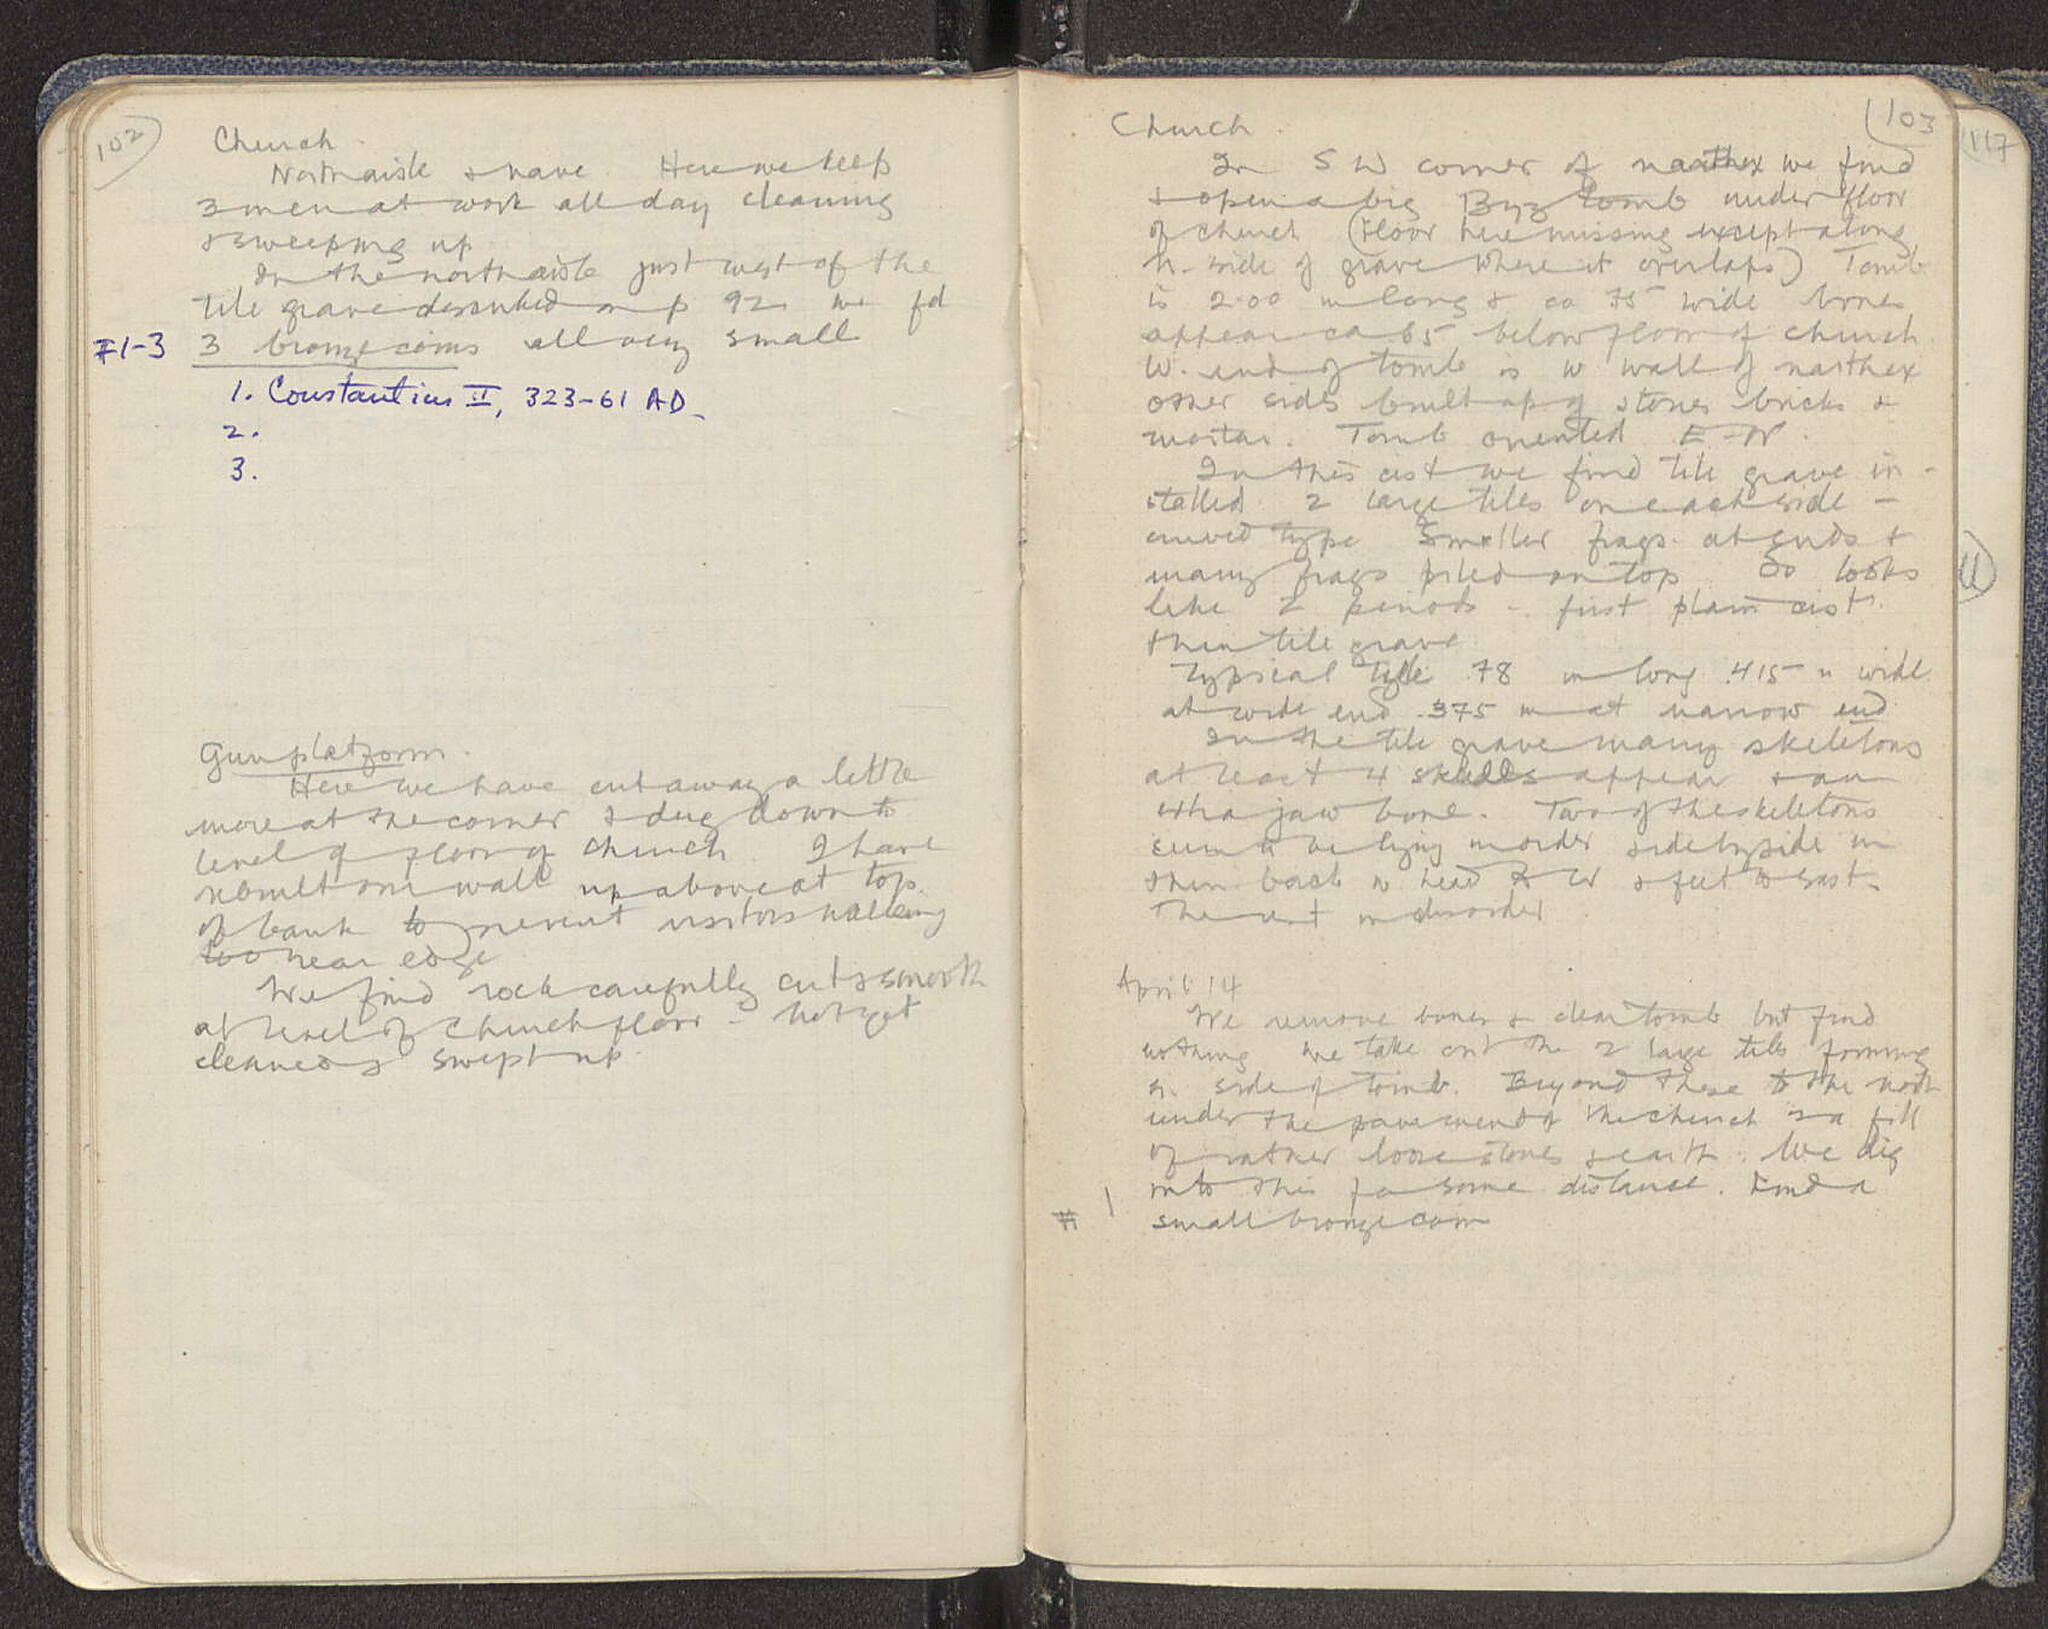 102
Church
North aisle & nave. Here we keep
3 men at work all day cleaning
& sweeping up
In the north aisle just west of the
tile grave described on p 92 we fd
#1-3 3 bronze coins all very small
1. Constantius II, 323-61 AD.
2.
3.
Gun platform.
Here we have cut away a little
more at the corner & dug down to
level of floor of church. I have
rebuilt one wall up above at top
of bank to prevent visitors walking
too near edge
We find rock carefully cut & smooth
at level of church floor - Not yet
cleaned & swept up.
103
Church.
In SW corner of narthex we find
& open a big Byz tomb under floor
of church (Floor here missing except along
N. side of grave where it overlaps) Tomb
is 2.00 m long & ca 75 wide bones
appear ca 65 below floor of church.
W. end of tomb is W wall of narthex
other sides built up of stones bricks &
mortar. Tomb oriented E-W.
In this cist we find tile grave in-
stalled 2 large tiles on each side -
curved type Smaller frags. at ends &
many frags piled on top So looks
like 2 periods - first plain cist.
then tile grave
Typical tile .78 m long .415 m wide
at wide end .375 m at narrow end
In the tile grave many skeletons
at least 4 skulls appear & an
extra jaw bone. Two of the skeletons
seem to be lying in order side by side on
their backs w. head to W & feet to east.
The rest in disorder
April 14
We remove bones & clear tomb but find
nothing we take out the 2 large tiles forming
n. side of tomb. Beyond these to the north
under the pavement of the church is a fill
of rather loose stones & earth. We dig
into this for some distance. Find a
# 1 small bronze coin
117
11